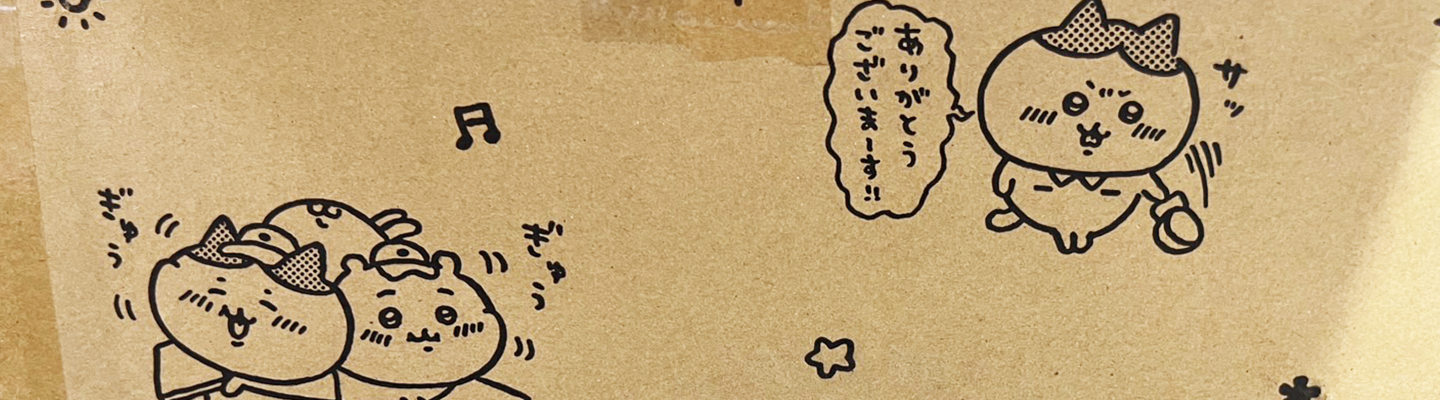 ありがとう
ございまーす!!
サッ
ぎゅうっ
ぎゅうっ